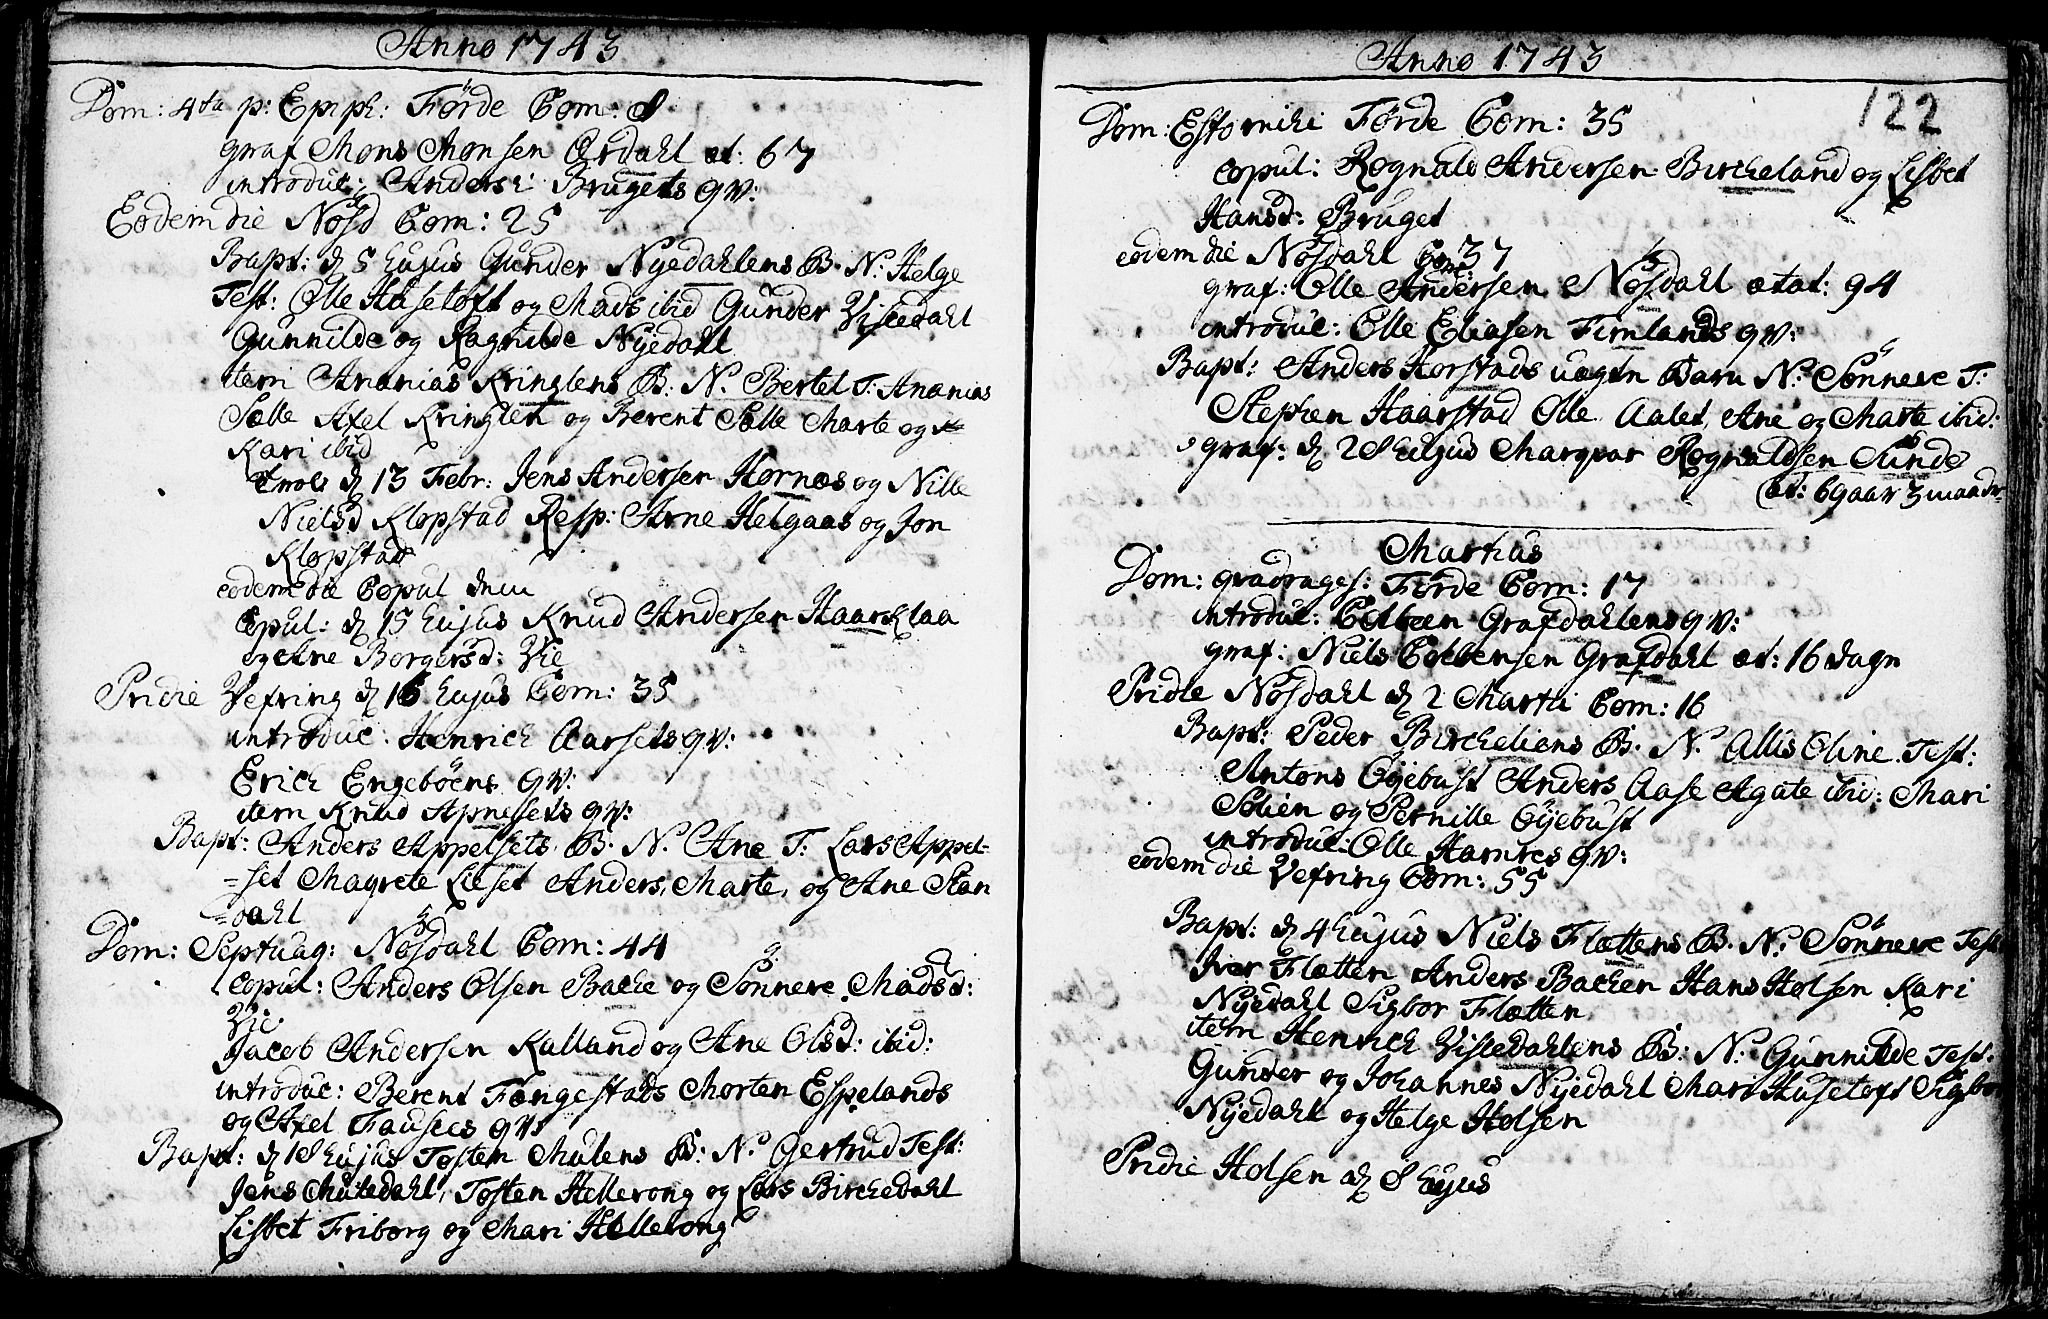 Anno 1743
Dom: 4ta p: Epiph: Förde Com: 8
graf Mons Monsen Ardahl æt: 67
introduc: Anders i Brugets qv:
Eodem die Nösd Com: 25
Bapt: d 5 hujus Gunder Nyedahlens B. N: Helge
Test: Olle Husetoft og Mads ibid Gunder Viisedahl
Gunnilde og Ragnilde Nyedahl
item Ananias Kringlens B: N. Bertel T: Ananias
Solle Axel Kringlen og Berent Solle Marte og
Kari ibid
d 13 Febr: Jens Andersen Hornæs og Nille
Nielsd Klopstad Resp: Arne Helgaas og Jon
Klopstad
eodem die Copul
Copul: d 15 hujus Knud Andersen Haarklaa
og Ane Borgersd: Vie
Pridie Vefring d 16 hujus Com: 35
introduc: Henrich Aarsets qv:
Erich Engeböens qv:
item Knud Apnesets qv:
Bapt: Anders Appelsets B. N. Ane T: Lars Appel-
=set Magrete Lieset Anders, Marte, og Ane Stan
=dahl
Dom: Septuag: Nösdahl Com: 44
Copul: Anders Olsen Bache og Sönneve Madsd:
Vie.
Jacob Andersen Kalland og Ane Olsd: ibid:
introduc: Berent Fangestads Morten Espelands
og Axel Fausees qv:
Bapt: d 18 hujus Tosten Mulens B: N. Gertrud Test:
Jens Mutedahl, Tosten Hellevong og Lars Birchedahl
Lisbet Friborg og Mari Hellevong
Anno 1743
122
Dom: Estomihi Förde Com: 35
copul: Rognald Andersen Bircheland og Lisbet
Hansd: Bruget
eodem die Nösdahl Com 37
graf: Olle Andersen Nösdahl ætat: 94
introduc: Olle Eliasen Fimlands qv:
Bapt: Anders Horstads uægte Barn N: Sönneve T:
Stephen Haarstad Olle Aalet, Ane og Marte ibid:
graf: d 28 hujus Marqvar Rognaldsen Sunde
æt: 69 aar 3 maadr
Martius
Dom: qvadrages: Förde Com: 17
introduc: Colbeen Grafdahlens qv:
graf: Niels Colbensen Grafdahl æt: 16 dage
Pridie Nösdahl d 2 Martii Com: 16
Bapt: Peder Bircheliens B. N. Allis Oline. Test:
Antons Öyebust Anders Aase Agate ibid: Mari
Solien og Pernille Öyebust
introduc: Olle Hamres qv:
eodem die Vefring Com: 55
Bapt: d 4 hujus Niels Flættens B. N: Sönneve Test
Iver Flætten Anders Bachen Hans Holsen Kari
Nyedahl Sigbor Flætten
item Henrich Viisedahlens B: N: Gunnilde Test:
Gunder og Johannes Nyedahl Mari Husetoft Sigbor
Nyedahl og Helge Holsen
Pridie Holsen d 8 hujus